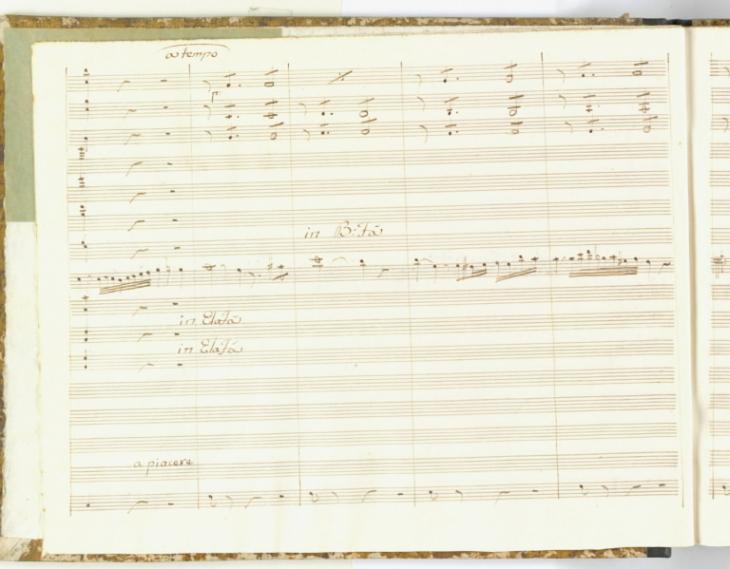 a tempo
in B: Fà
in Elafà
in Elafà
a piacere